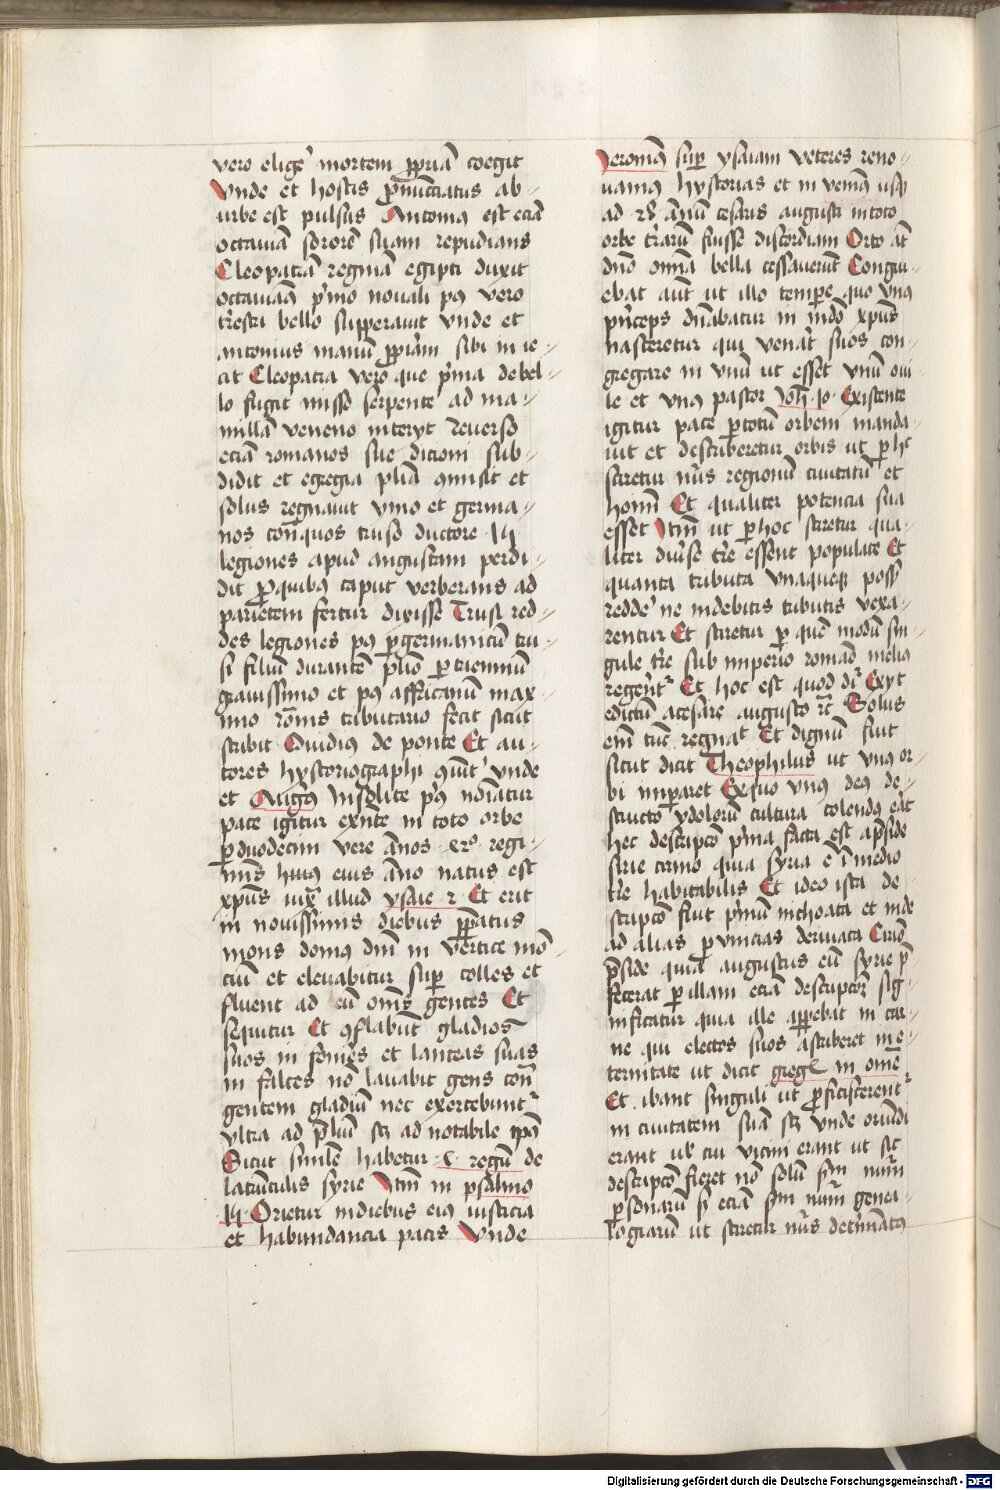 vero elige᷑ mortem ꝓpriā coegit
Vnde et hostis ꝓnūcciatus ab-
urbe est pulsus Antoniꝰ est eciā
octauiā sororē suam repudians
Cleopatrā reginā egipti duxit
octauianꝰ p̓mo nouali pꝰ vero
tr̄estri bello supperauit Vnde et
antonius manū ꝓpriam sibi in ie-
cit Cleopatra vero que p̓ma de bel-
lo fugit misso serpente ad ma-
millā veneno interijt Reuerso
eciā romanos sue dicioni sub-
didit et egregia p̄lia ꝯmisit et
solus regnauit vmo et germa-
nos con̄ quos truso ductore iij
legiones apud augustam perdi-
dit ꝓ quibꝰ caput verberans ad
parietem fertur dixisse Truse red-
des legiones pꝰ ꝑ germanicū tru-
si filiū durantē p̄lio ꝑ trienniū
grauissimo et pꝰ affricanū max
imo ro᷑nis tributario fecit sicut
scribit Ouidius de ponte Et au-
tores hystoriographi ꝯiūt᷑ vnde
et Virgiꝰ Insolite pꝰ no᷑iatur
pace igitur exn̄te in toto orbe
ꝑ duodecim vere ānos regi-
mīs huiꝰ eius āno natus est
xp̄us iux̄ illud ysaie 2 Et erit
in nouissimis diebus p̄patus
mons domꝰ dn̄i in vertice mō
ciū et eleuabitur suꝑ colles et
fluent ad eū om̄s gentes Et
sequitur Et ꝯflabūt gladios
suos in fom̄es et lanceas suas
in falces nō leuabit gens con̄
gentem gladiū nec exercebunt᷑
vltra ad p̄liū scꝫ ad notabile tp̄ꝰ
Sicut similē habetur regū de
latrūculis syrie Itm̄ in psalmo
Orietur in diebus eiꝰ iusticia
et habundancia pacis Vnde
Ieromꝰ suꝑ ysaiam veteres reno-
uamꝰ hystorias et in venimꝰ usqꝫ
ad 28 ānū cesaris augusti in toto
orbe tr̄arū fuisse discordiam Orto at̄
dn̄o om̄a bella cessauerūt Congru-
ebat aūt ut illo tempore quo vnꝰ
p̓nceps dn̄abatur in mūdo xp̄us
nasceretur qui venit᷑ suos con-
gregare in vnū ut esset vnū oui
le et vnꝰ pastor Joh̄ 10 Existente
igitur pace ꝑ totū orbem manda-
uit et describeretur orbis ut ꝑ hͦ
sciretur nūs regionū ciuitatū et
homī Et qualiter potencia sua
esset Itm̄ ut ꝑ hoc sciretur qua-
liter diu̓se tr̄e essent populate Et
quanta tributa vnaqueqꝫ poss͛
redde᷑ ne indebitis tributis vexa-
rentur Et sciretur ꝑ quē modū sin-
gule tr̄e sub imperio romāo meliꝰ
regerēt᷑ Et hoc est quod dr̄ Exijt
edictū a cesare augusto rc̄ Solus
em̄ tūc regnat᷑ Et dignū fuit
sicut dicit Theophilus ut vnꝰ or-
bi imꝑaret Ex quo vnꝰ deꝰ de-
structo ydolorū cultura colendꝰ erat
hec descripcō p̓ma facta est a p̄side
sirie cirino quia syria ē ī medio
tr̄e habitabilis Et ideo ista de-
scripcō fuit p̓mū inchoata et inde
ad alias ꝓuincias deriuata Cirinō
p̄side quia augustus eū syrie p̄
fecerat ꝑ illam eciā descripcōꝫ sig-
nificatur quia ille apparebat in car-
ne qui electos suos ascriberet in e-
ternitate ut dicit greg᷑ in omē
Et ibant singuli ut ꝓficiscerent᷑
in ciuitatem suā scꝫ vnde oriūdi
erant ul̄ cui vicini erant ut sic
descripcō fieret nō solū sm̄ num̄
ꝑsonarū sꝫ eciā sm̄ num̄ genea-
logiarū ut sciretur nūs det̓minatꝰ
Digitalisierung gefördert durch die Deutsche Forschungsgemeinschaft - DFG